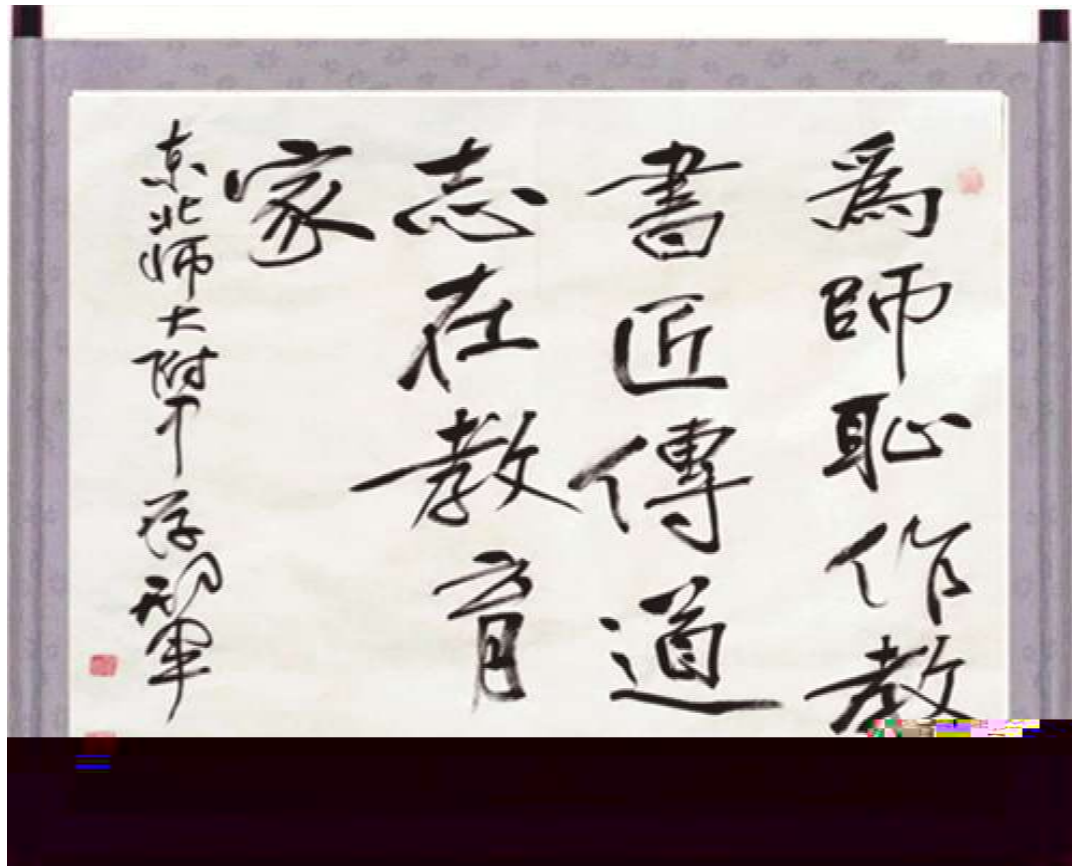 為師恥作教
書匠傳道
志在教育
家
东北师大附中